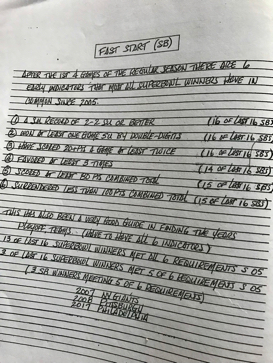 FAST START (SB)
AFTER THE 1ST 4 GAMES OF THE REGULAR SEASON THERE ARE 6
EARLY INDICATORS THAT MOST ALL SUPERBOWL WINNERS HAVE IN
COMMON SINCE 2005.
① A SU RECORD OF 2-2 SU OR BETTER (16 OF LAST 16 SBS)
② WON AT LEAST ONE GAME SU BY DOUBLE-DIGITS (16 OF LAST 16 SBS)
③ HAVE SCORED 20+PTS A GAME AT LEAST TWICE (16 OF LAST 16 SBS)
④ FAVORED AT LEAST 2 TIMES (14 OF LAST 16 SBS)
⑤ SCORED AT LEAST 80 PTS COMBINED TOTAL (15 OF LAST 16 SBS)
⑥ SURRENDERED LESS THAN 100 PTS COMBINED TOTAL (15 OF LAST 16 SBS)
THIS HAS ALSO BEEN A VERY GOOD GUIDE IN FINDING THE YEARS
PLAYOFF TEAMS. (HAVE TO HAVE ALL 6 INDICATORS)
13 OF LAST 16 SUPERBOWL WINNERS MET ALL 6 REQUIREMENTS S 05
3 OF LAST 16 SUPERBOWL WINNERS MET 5 OF 6 REQUIREMENTS S 05
(3 SB WINNERS MEETING 5 OF 6 REQUIREMENTS)
2007 NY GIANTS
2008 PITTSBURGH
2017 PHILADELPHIA